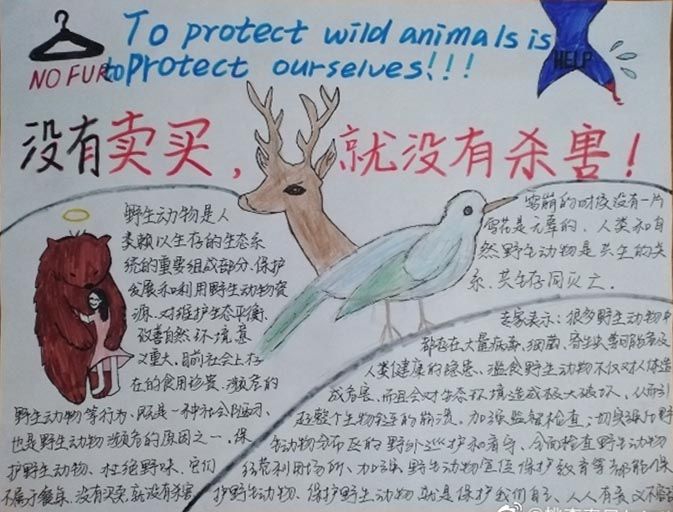 To protect wild animals is
to protect ourselves!!!
NO FUR
HELP
没有卖买，就没有杀害！
野生动物是人
类赖以生存的生态系
统的重要组成部分、保护
发展和利用野生动物资
源、对维护生态平衡、
改善自然环境意
义重大、目前社会上存
在的食用珍贵、濒危的
野生动物等行为、既是一种社会陋习、
也是野生动物濒危的原因之一、保
护野生动物、杜绝野味、它们
不属于餐桌、没有买卖，就没有杀害
雪崩的时候没有一片
雪花是无辜的、人类和自
然野生动物是共生的关
系、共生存同灭亡.
专家表示：很多野生动物中
都存在大量病毒、细菌、寄生虫等可能危及
人类健康的隐患、滥食野生动物不仅对人体造
成危害、而且会对生态环境造成极大破坏、从而引
起整个生物链的崩溃。加强监督检查：切实强化野
生动物分布区的野外巡护和看守、全面检查野生动物
经营利用场所、加强野生动物宣传保护教育等都能保
护野生动物、保护野生动物就是保护我们自己、人人有责